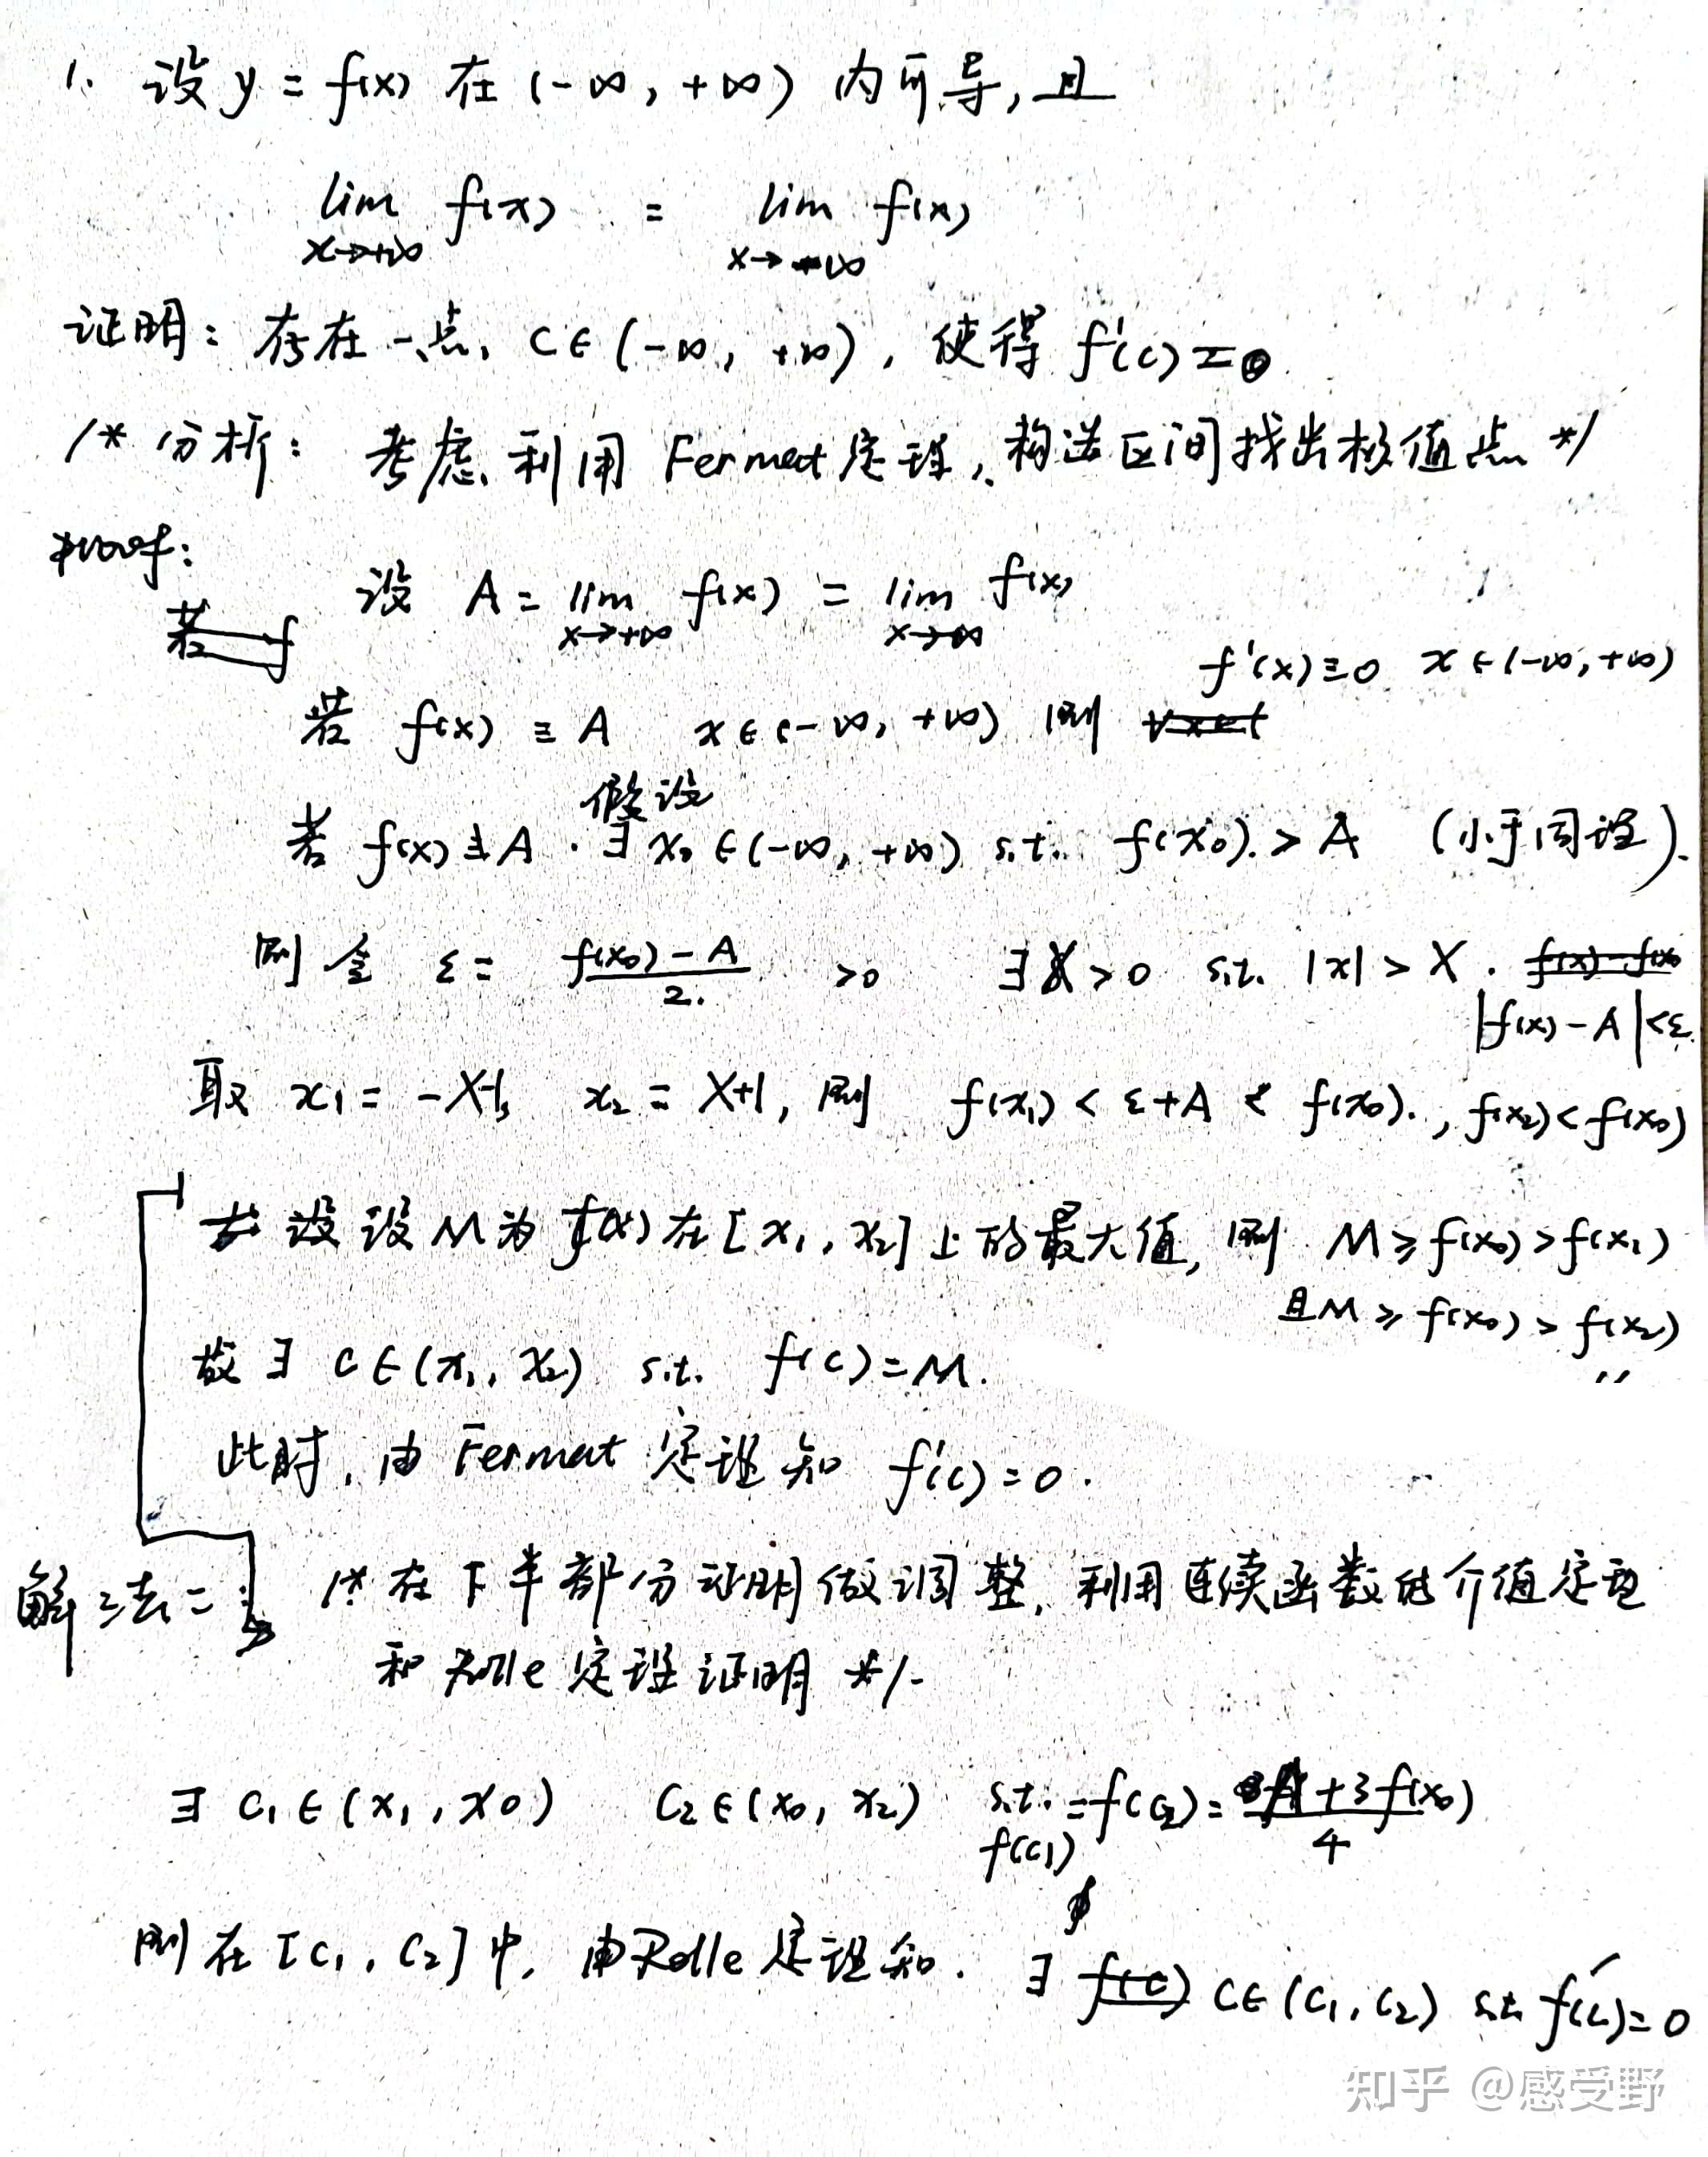 1. 设 y = f(x) 在 (-∞, +∞) 内可导, 且
lim f(x) = lim f(x)
x→+∞ x→-∞
证明: 存在一点, C∈(-∞, +∞), 使得 f'(c)=0
/* 分析: 考虑利用 Fermat 定理, 构造区间找出极值点 */
proof:
设 A = lim f(x) = lim f(x)
x→+∞ x→-∞
f'(x)≡0 x∈(-∞,+∞)
若 f(x) ≡ A x∈(-∞, +∞) 则
假设
若 f(x)≢A . ∃ x₀∈(-∞, +∞) s.t. f(x₀) > A (小于同理).
则令 ε = (f(x₀) - A)/2. >0 ∃X>0 s.t. |x| > X .
|f(x) - A|<ε.
取 x₁ = -X-1, x₂ = X+1, 则 f(x₁) < ε+A < f(x₀)., f(x₂)<f(x₀)
设设 M 为 f(x) 在 [x₁, x₂] 上的最大值, 则 M ≥ f(x₀) > f(x₁)
且 M ≥ f(x₀) > f(x₂)
故 ∃ C∈(x₁, x₂) s.t. f(c) = M.
此时, 由 Fermat 定理知 f'(c) = 0.
解法二: /* 在下半部分证明做调整, 利用连续函数的介值定理
和 Rolle 定理证明 */.
∃ C₁∈(x₁, x₀) C₂∈(x₀, x₂) s.t. = f(C₂) = (A+3f(x₀))/4
f(c₁)
则在 [C₁, C₂] 中, 由 Rolle 定理知. ∃ C∈(C₁, C₂) s.t. f'(c)=0
知乎 @感受野